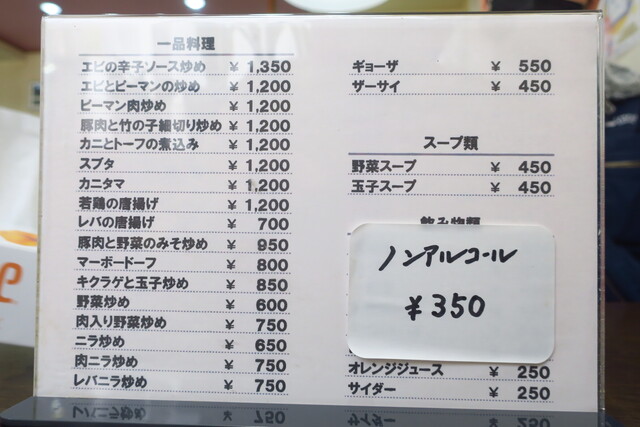 一品料理
エビの辛子ソース炒め ¥ 1,350
エビとピーマンの炒め ¥ 1,200
ピーマン肉炒め ¥ 1,200
豚肉と竹の子細切り炒め ¥ 1,200
カニとトーフの煮込み ¥ 1,200
スブタ ¥ 1,200
カニタマ ¥ 1,200
若鶏の唐揚げ ¥ 1,200
レバの唐揚げ ¥ 700
豚肉と野菜のみそ炒め ¥ 950
マーボードーフ ¥ 800
キクラゲと玉子炒め ¥ 850
野菜炒め ¥ 600
肉入り野菜炒め ¥ 750
ニラ炒め ¥ 650
肉ニラ炒め ¥ 750
レバニラ炒め ¥ 750
ギョーザ ¥ 550
ザーサイ ¥ 450
スープ類
野菜スープ ¥ 450
玉子スープ ¥ 450
飲み物類
ノンアルコール
¥350
オレンジジュース ¥ 250
サイダー ¥ 250